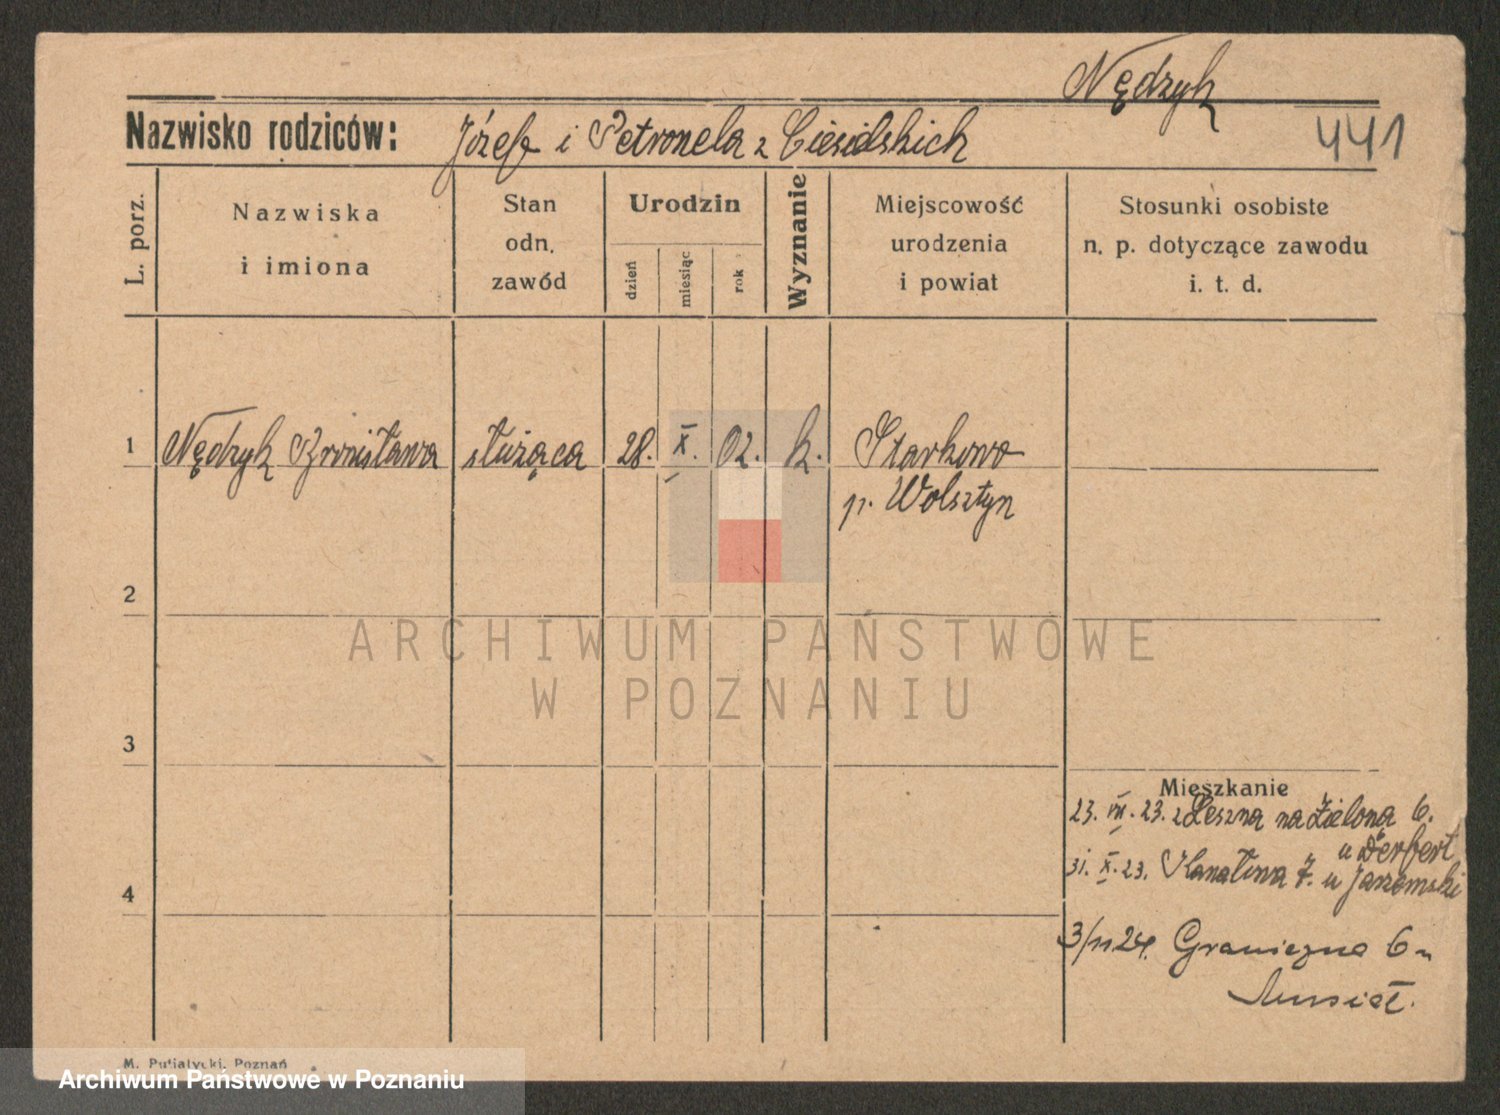 Nędzyk
Nazwisko rodziców: Józef i Petronela z Ciesielskich
441
L. porz.
Nazwiska
i imiona
Stan
odn.
zawód
Urodzin
dzień
miesiąc
rok
Wyznanie
Miejscowość
urodzenia
i powiat
Stosunki osobiste
n. p. dotyczące zawodu
i. t. d.
1 Nędzyk Bronisława służąca 28. X. 02. k. Starkowo
p. Wolsztyn
2
ARCHIWUM PAŃSTWOWE
W POZNANIU
3
Mieszkanie
23. VII. 23. z Leszna na Zielona 6.
u Herbert
31. X. 23. Kanałowa 7. u Jarzemski
4
3/11 24. Graniczna 6 u
Musiał.
M. Putiatycki, Poznań
Archiwum Państwowe w Poznaniu